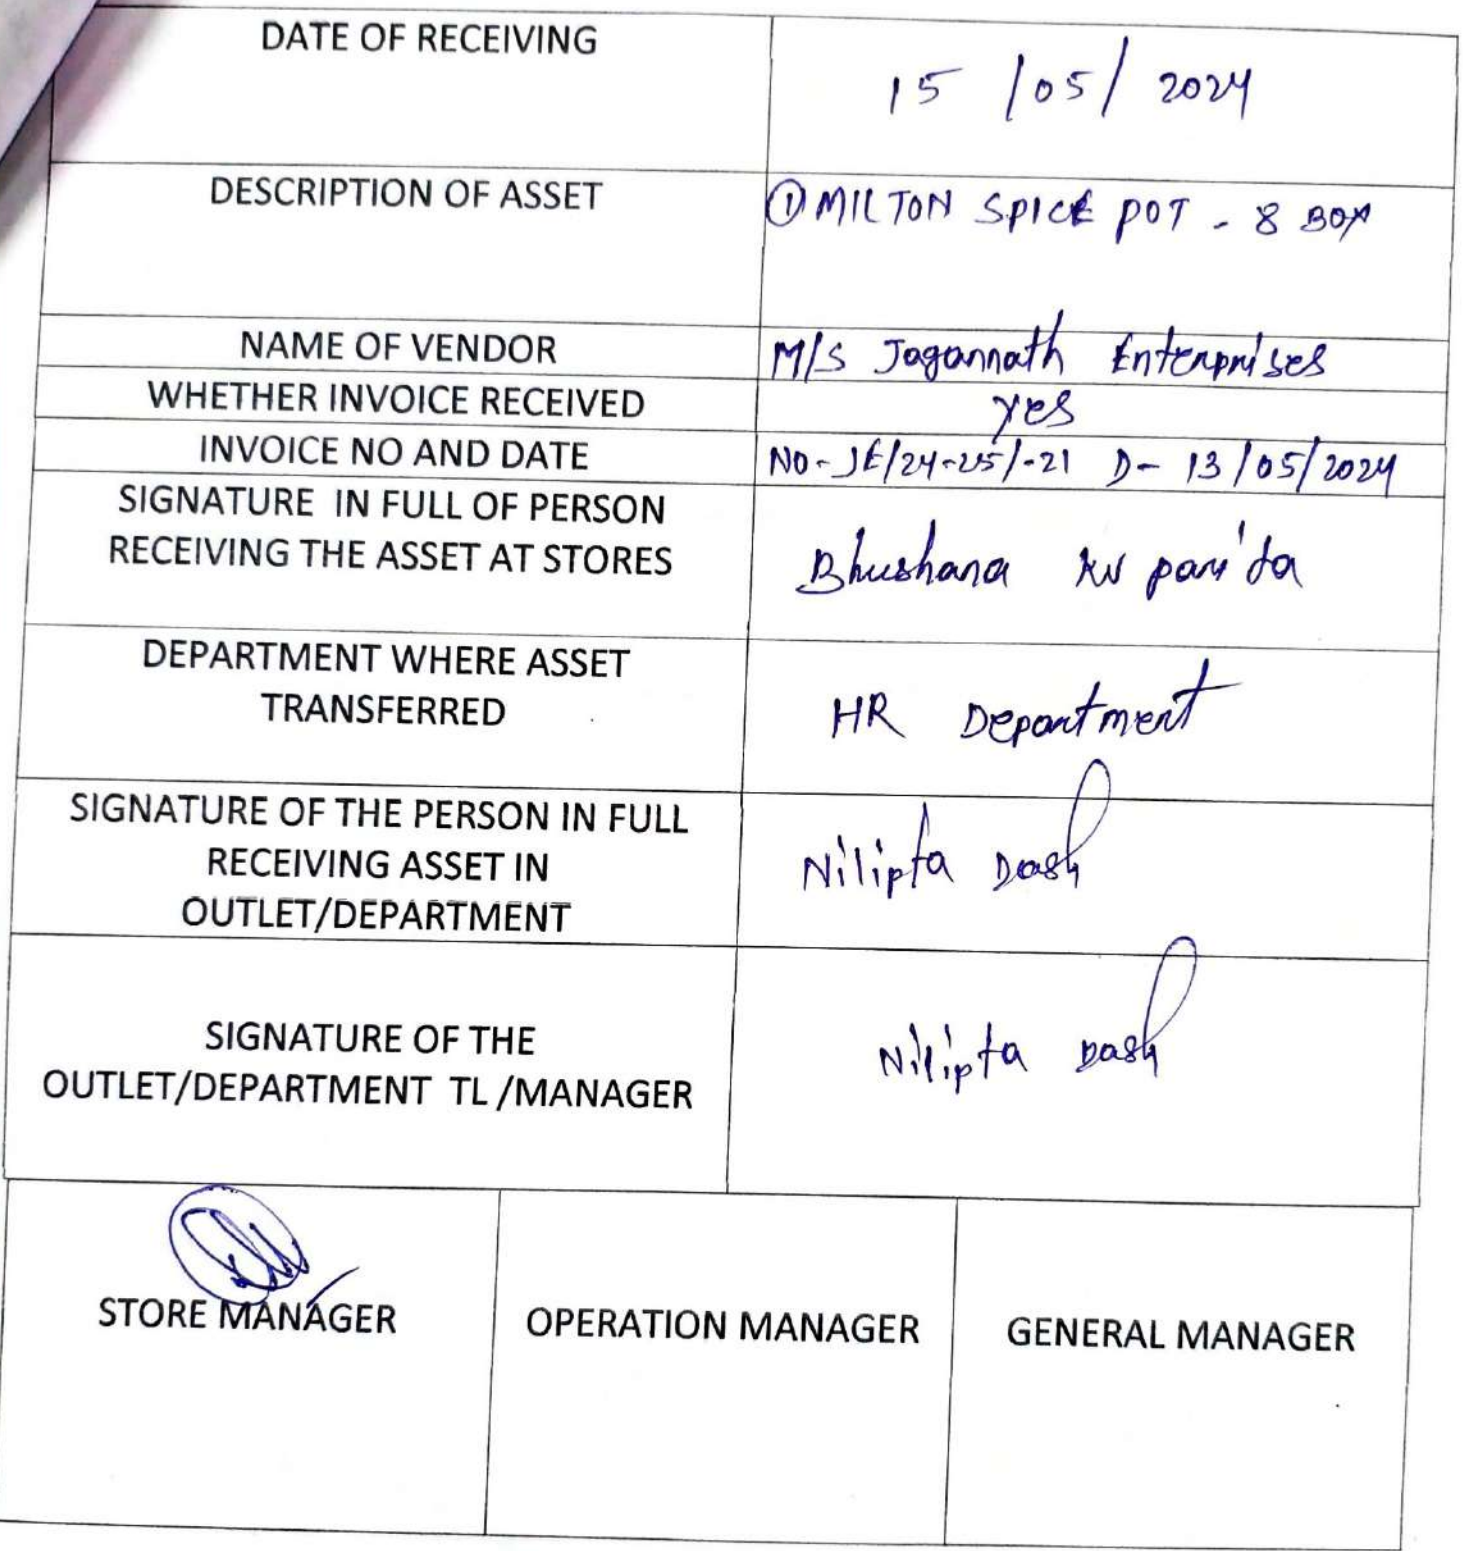 DATE OF RECEIVING
15 /05/ 2024
DESCRIPTION OF ASSET
① MILTON SPICE POT - 8 BOX
NAME OF VENDOR
M/S Jagannath Enterprises
WHETHER INVOICE RECEIVED
yes
INVOICE NO AND DATE
NO- JE/24-25/-21 D- 13/05/2024
SIGNATURE IN FULL OF PERSON
RECEIVING THE ASSET AT STORES
Bhushana Ku parida
DEPARTMENT WHERE ASSET
TRANSFERRED
HR Department
SIGNATURE OF THE PERSON IN FULL
RECEIVING ASSET IN
OUTLET/DEPARTMENT
Nilipta Dash
SIGNATURE OF THE
OUTLET/DEPARTMENT TL /MANAGER
Nilipta Dash
STORE MANAGER
OPERATION MANAGER
GENERAL MANAGER